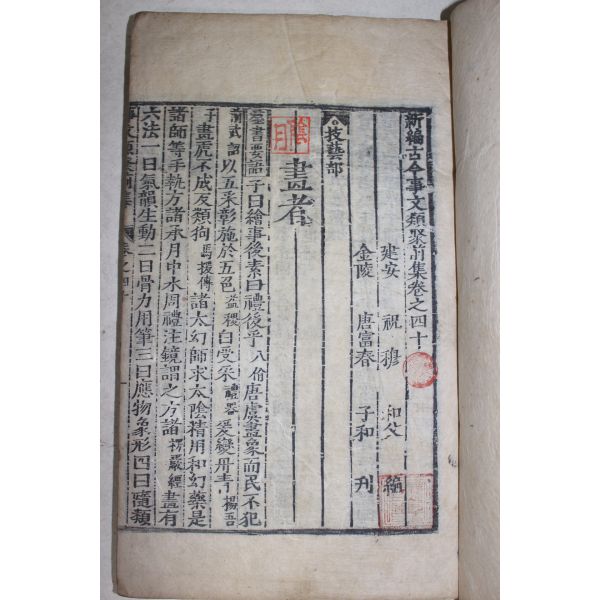 新編古今事文類聚前集卷之四十
建安 祝穆 和父 編
金陵 唐富春 子和 刊
技藝部
畫者
羣書要語子曰繪事後素曰禮後乎八佾唐虞畫象而民不犯
前武詔以五采彰施於五色益稷白受采禮器爰變丹青揚吾
子畫虎不成反類狗馬援傳諸太幻師求太陰精用和幻藥是
諸師等手執方諸承月中水周禮注鏡謂之方諸楞嚴經畫有
六法一曰氣韻生動二曰骨力用筆三曰應物象形四曰隨類